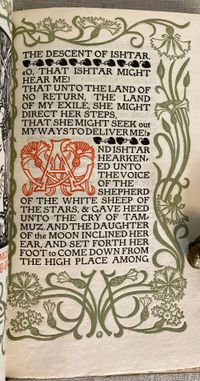 THE DESCENT OF ISHTAR.
«O, THAT ISHTAR MIGHT
HEAR ME!
THAT UNTO THE LAND OF
NO RETURN, THE LAND
OF MY EXILE, SHE MIGHT
DIRECT HER STEPS,
THAT SHE MIGHT SEEK out
MY WAYS TO DELIVER ME!»
AND ISHTAR
HEARKEN-
ED UNTO
THE VOICE
OF THE
SHEPHERD
OF THE WHITE SHEEP OF
THE STARS, & GAVE HEED
UNTO THE CRY OF TAM-
MUZ, AND THE DAUGHTER
OF the MOON INCLINED HER
EAR, AND SET FORTH HER
FOOT to COME DOWN FROM
THE HIGH PLACE AMONG